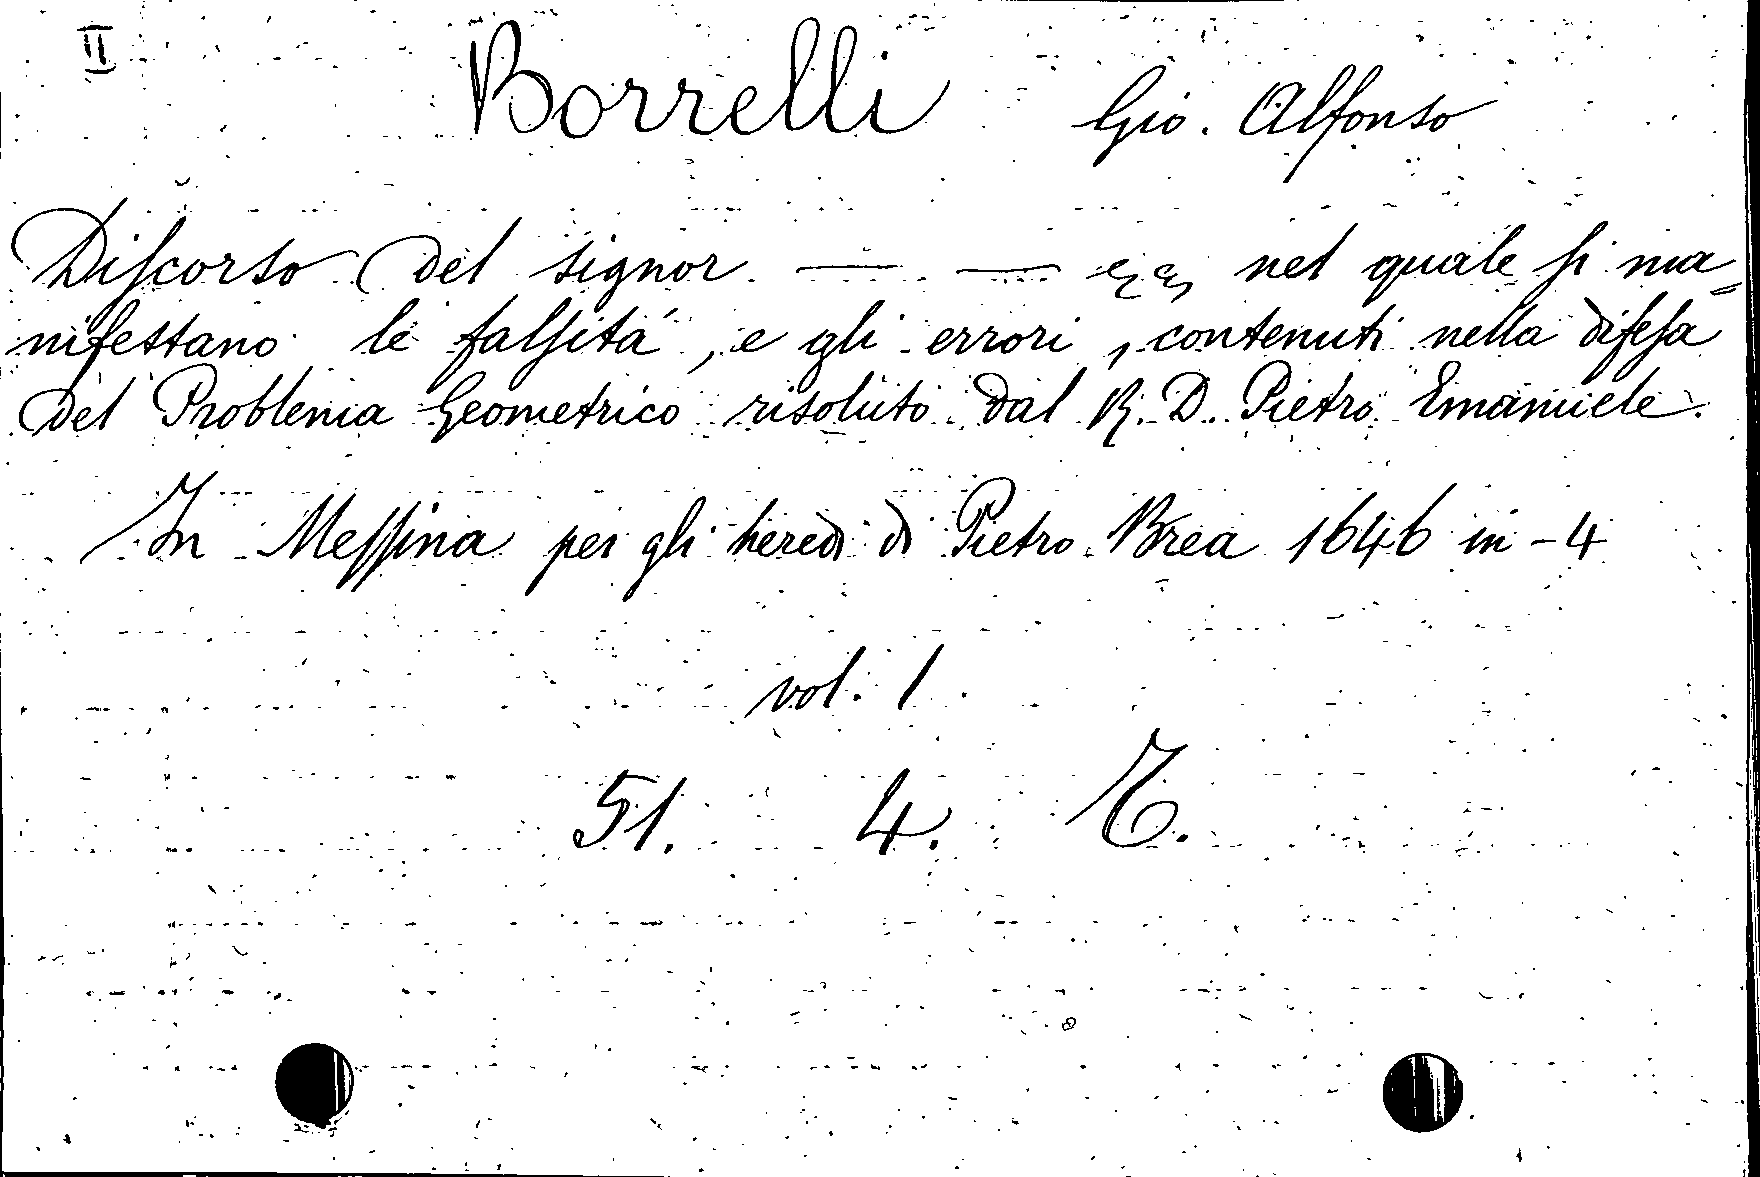 II
Borrelli Gio. Alfonso
Diſcorso del signor — — nel quale ſi ma=
nifestano le falſità, e gli errori, contenuti nella difeſa
del Problema Geometrico risoluto dal R. D. Pietro Emanuele.
In Meſſina per gli heredi di Pietro Brea 1646 in-4
vol. 1
51. 4. T.